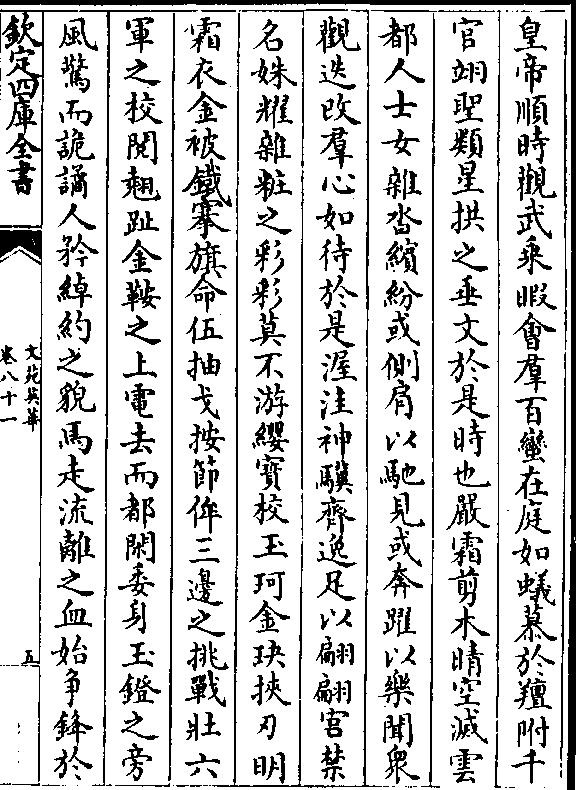 皇帝順時觀武乘暇㑹羣百蠻在庭如蟻慕於羶附千
官翊聖類星拱之垂文於是時也嚴霜剪木晴空滅雲
都人士女雜沓繽紛或側肩以馳見或奔躍以樂聞衆
觀迭改羣心如待於是渥洼神驥齊逸足以翩翩宮禁
名姝耀雜粧之彩彩莫不游纓寳校玉珂金玦挾刃明
霜衣金被鐵搴旗命伍抽戈按節侔三邊之挑戰壯六
軍之校閱翹趾金鞍之上電去而都閑委身玉鐙之旁
風驚而詭譎人矜綽約之貌馬走流離之血始爭鋒於
欽定四庫全書
文苑英華
卷八十一
五